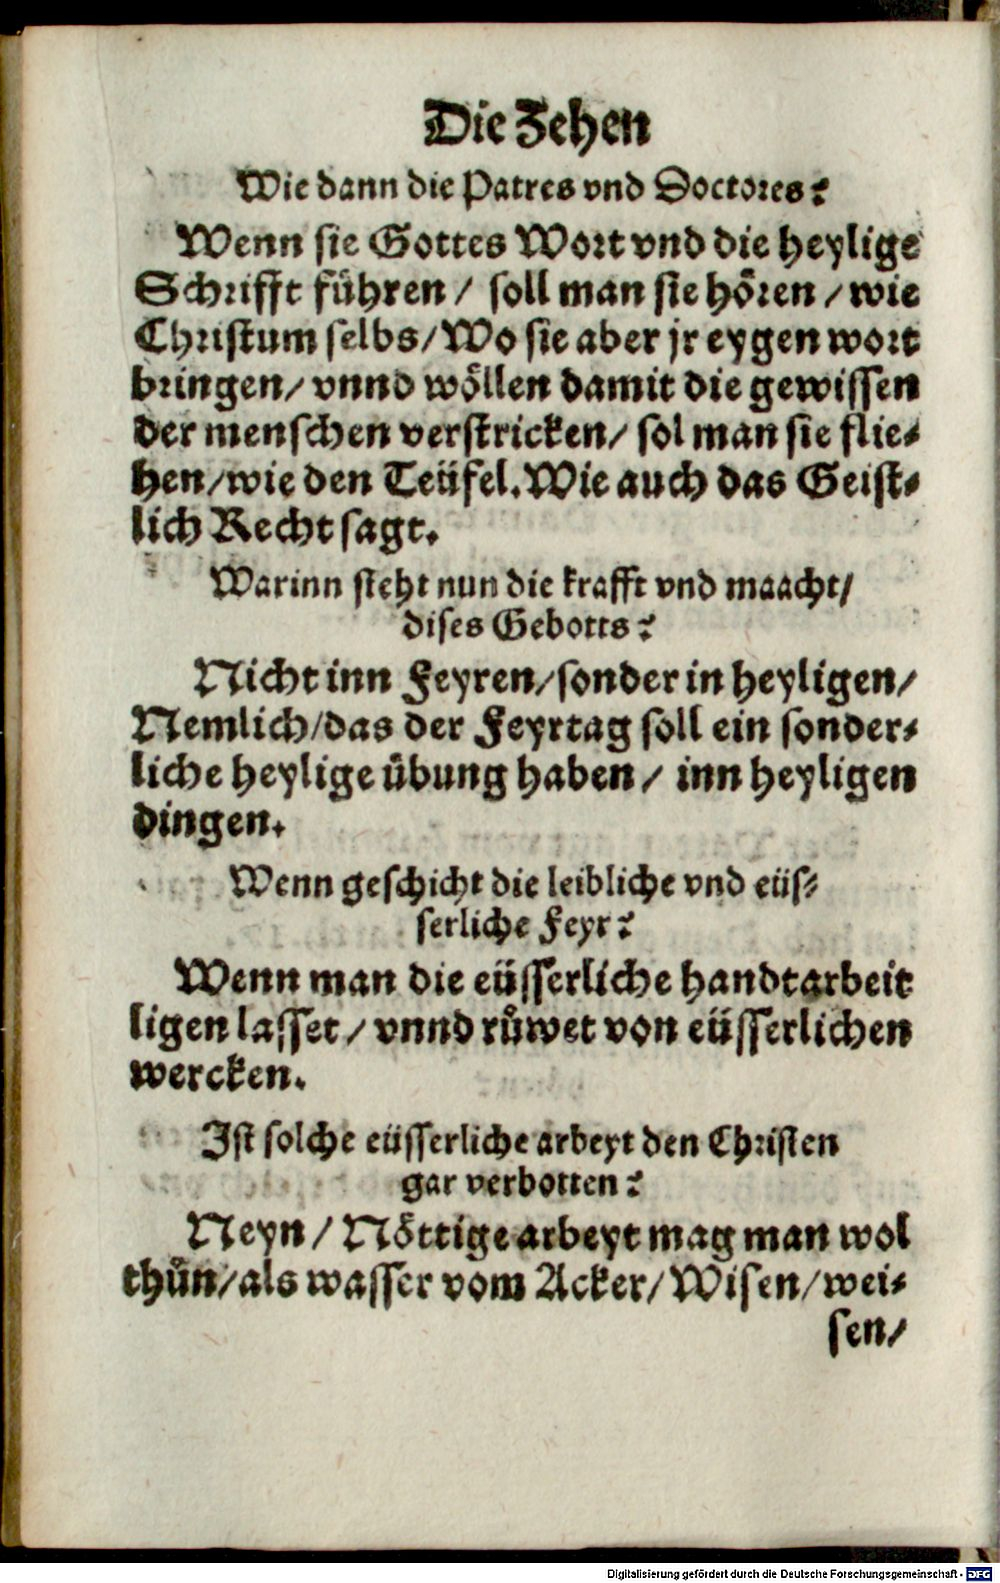 Die Zehen
Wie dann die Patres vnd Doctores?
Wenn sie Gottes Wort vnd die heylige
Schrifft führen / soll man sie hören / wie
Christum selbs / Wo sie aber jr eygen wort
bringen / vnnd wöllen damit die gewissen
der menschen verstricken / sol man sie flie-
hen / wie den Teüfel. Wie auch das Geist-
lich Recht sagt.
Warinn steht nun die krafft vnd maacht /
dises Gebotts?
Nicht inn Feyren / sonder in heyligen /
Nemlich / das der Feyrtag soll ein sonder-
liche heylige übung haben / inn heyligen
dingen.
Wenn geschicht die leibliche vnd eüs-
serliche Feyr?
Wenn man die eüsserliche handtarbeit
ligen lasset / vnnd růwet von eüsserlichen
wercken.
Ist solche eüsserliche arbeyt den Christen
gar verbotten?
Neyn / Nöttige arbeyt mag man wol
thůn / als wasser vom Acker / Wisen / wei-
sen /
Digitalisierung gefördert durch die Deutsche Forschungsgemeinschaft - DFG